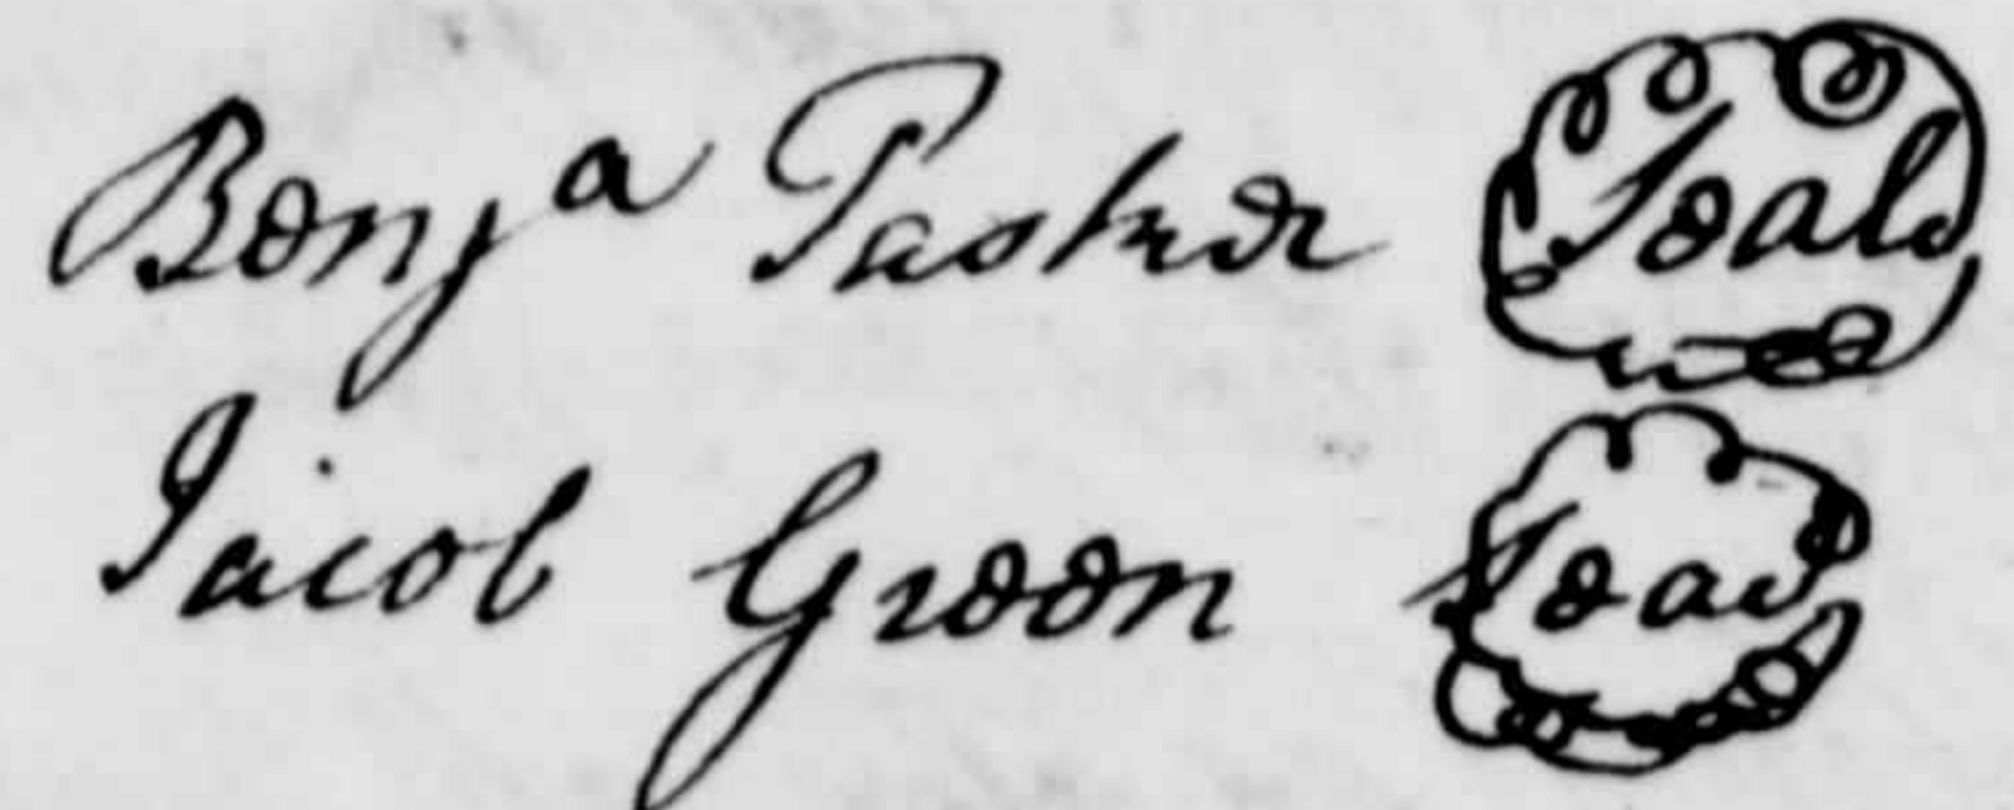 Benjᵃ Tasker Seal
Jacob Green Seal